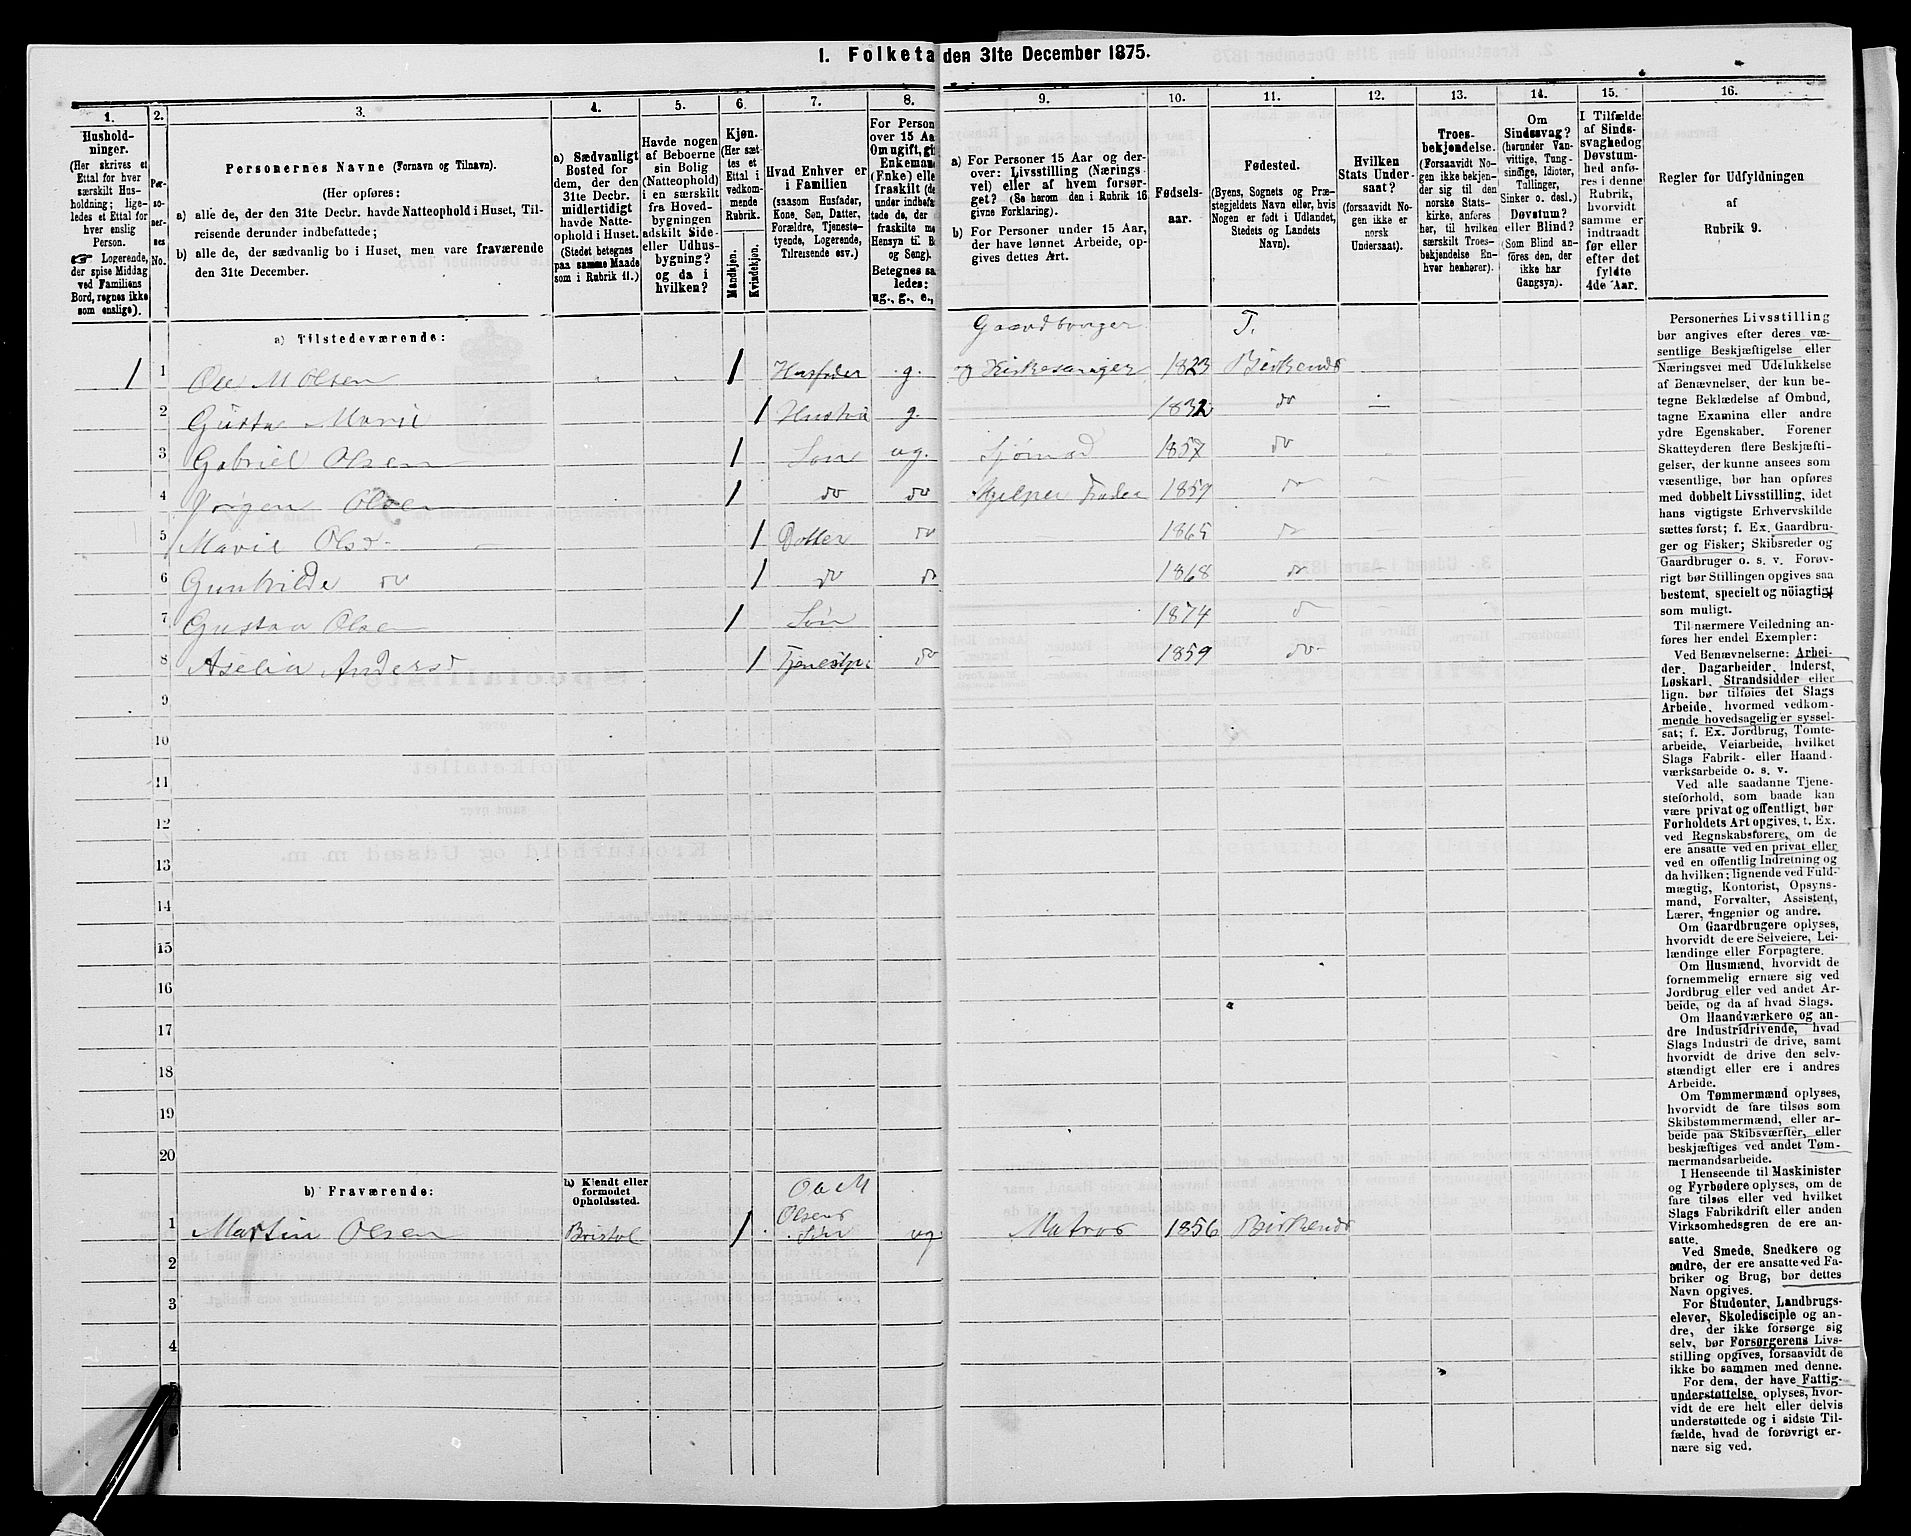 1. Folketa den 31te December 1875.
1.
Hushold-
ninger.
(Her skrives et
Ettal for hver
særskilt Hus-
holdning; lige-
ledes et Ettal for
hver enslig
Person.
☛ Logerende,
der spise Middag
ved Familiens
Bord, regnes ikke
som enslige).
2.
Per-
so-
ner-
nes
No.
3.
Personernes Navne (Fornavn og Tilnavn).
(Her opføres:
a) alle de, der den 31te Decbr. havde Natteophold i Huset, Til-
reisende derunder indbefattede;
b) alle de, der sædvanlig bo i Huset, men vare fraværende
den 31te December.
4.
a) Sædvanligt
Bosted for
dem, der den
31te Decbr.
midlertidigt
havde Natte-
ophold i Huset.
(Stedet betegnes
paa samme Maade
som i Rubrik 11.)
5.
Havde nogen
af Beboerne
sin Bolig
(Natteophold)
i en særskilt
fra Hoved-
bygningen
adskilt Side-
eller Udhus-
bygning?
og da i
hvilken?
6.
Kjøn.
(Her sæt-
tes et
Ettal i
vedkom-
mende
Rubrik.
Mandkjøn.
Kvindekjøn.
7.
Hvad Enhver er
i Familien
(saasom Husfader,
Kone, Søn, Datter,
Forældre, Tjeneste-
tyende, Logerende,
Tilreisende osv.)
8.
For Person
over 15 Aa
Om ugift, gi
Enkeman
(Enke) elle
fraskilt (de
under indbefat
tede de, der
fraskilte m
Hensyn til B
og Seng).
Betegnes sa
ledes:
ug., g., e.,
9.
a) For Personer 15 Aar og der-
over: Livsstilling (Nærings-
vei) eller af hvem forsør-
get? (Se herom den i Rubrik 16
givne Forklaring).
b) For Personer under 15 Aar,
der have lønnet Arbeide, op-
gives dettes Art.
10.
Fødsels-
aar.
11.
Fødested.
(Byens, Sognets og Præ-
stegjeldets Navn eller, hvis
Nogen er født i Udlandet,
Stedets og Landets
Navn).
12.
Hvilken
Stats Under-
saat?
(forsaavidt No-
gen ikke er
norsk
Undersaat).
13.
Troes-
bekjendelse.
(Forsaavidt No-
gen ikke bekjen-
der sig til den
norske Stats-
kirke, anføres
her, til hvilken
særskilt Troes-
bekjendelse En-
hver henhører).
14.
Om
Sindssvag?
(herunder Van-
vittige, Tung-
sindige, Idioter,
Tullinger,
Sinker o. desl.)
Døvstum?
eller Blind?
(Som Blind an-
føres den, der
ikke har
Gangsyn).
15.
I Tilfælde
af Sinds-
svaghed og
Døvstum-
hed anfø-
res i denne
Rubrik,
hvorvidt
samme er
indtraadt
før eller
efter det
fyldte
4de Aar.
16.
Regler for Udfyldningen
af
Rubrik 9.
a) Tilstedeværende:
Gaardbruger T.
1 1 Ole M Olsen 1 Husfader g. og Kirkesanger 1823 Birkends
2 Gusta Marie 1 Hustru g. 1832 do
3 Gabriel Olsen 1 Søn ug. Sjømad 1857 do
4 Jørgen Olsen 1 do do Hjelper Fader 1859 do
5 Marie Olsd. 1 Dotter do 1865 do
6 Gunhilde do 1 do do 1868 do
7 Gustav Olsen 1 Søn 1874 d
8 Aselia Andersd 1 Tjenestpi do 1859 do
9
10
11
12
13
14
15
16
17
18
19
20
b) Fraværende:
b) Kjendt eller
formodet
Opholdssted.
Ole M
Olsens
1 Martin Olsen Bristol 1 Søn ug Matros 1856 Birkends
2
3
4
5
6
Personernes Livsstilling
bør angives efter deres væ-
sentlige Beskjæftigelse eller
Næringsvei med Udelukkelse
af Benævnelser, der kun be-
tegne Beklædelse af Ombud,
tagne Examina eller andre
ydre Egenskaber. Forener
Skatteyderen flere Beskjæfti-
gelser, der kunne ansees som
væsentlige, bør han opføres
med dobbelt Livsstilling, idet
hans vigtigste Erhvervskilde
sættes først; f. Ex. Gaardbru-
ger og Fisker; Skibsreder og
Gaardbruger o. s. v. Forøv-
rigt bør Stillingen opgives saa
bestemt, specielt og nøiagtigt
som muligt.
Til nærmere Veiledning an-
føres her endel Exempler:
Ved Benævnelserne: Arbei-
der, Dagarbeider, Inderst,
Løskarl, Strandsidder eller
lign. bør tilføies det Slags
Arbeide, hvormed vedkom-
mende hovedsagelig er syssel-
sat; f. Ex. Jordbrug, Tomte-
arbeide, Veiarbeide, hvilket
Slags Fabrik- eller Haand-
værksarbeide o. s. v.
Ved alle saadanne Tjene-
steforhold, som baade kan
være privat og offentligt, bør
Forholdets Art opgives, t. Ex.
ved Regnskabsførere, om de
ere ansatte ved en privat eller
ved en offentlig Indretning og
da hvilken; lignende ved Fuld-
mægtig, Kontorist, Opsyns-
mand, Forvalter, Assistent,
Lærer, Ingeniør og andre.
Om Gaardbrugere oplyses,
hvorvidt de ere Selveiere, Lei-
lændinge eller Forpagtere.
Om Husmænd, hvorvidt de
fornemmelig ernære sig ved
Jordbrug eller ved andet Ar-
beide, og da af hvad Slags.
Om Haandværkere og an-
dre Industridrivende, hvad
Slags Industri de drive, samt
hvorvidt de drive den selv-
stændigt eller ere i andres
Arbeide.
Om Tømmermænd oplyses,
hvorvidt de fare tilsøs som
Skibstømmermænd, eller ar-
beide paa Skibsværfter, eller
beskjæftiges ved andet Tøm-
mermandsarbeide.
I Henseende til Maskinister
og Fyrbødere oplyses, om de
fare tilsøs eller ved hvilket
Slags Fabrikdrift eller anden
Virksomhed de ere an-
satte.
Ved Smede, Snedkere og
andre, der ere ansatte ved Fa-
briker og Brug, bør dettes
Navn opgives.
For Studenter, Landbrugs-
elever, Skoledisciple og an-
dre, der ikke forsørge sig
selv, bør Forsørgerens Livs-
stilling opgives, forsaavidt de
ikke bo sammen med denne.
For dem, der have Fattig-
understøttelse, oplyses, hvor-
vidt de ere helt eller delvis
understøttede og i sidste Til-
fælde, hvad de forøvrigt er-
nære sig ved.